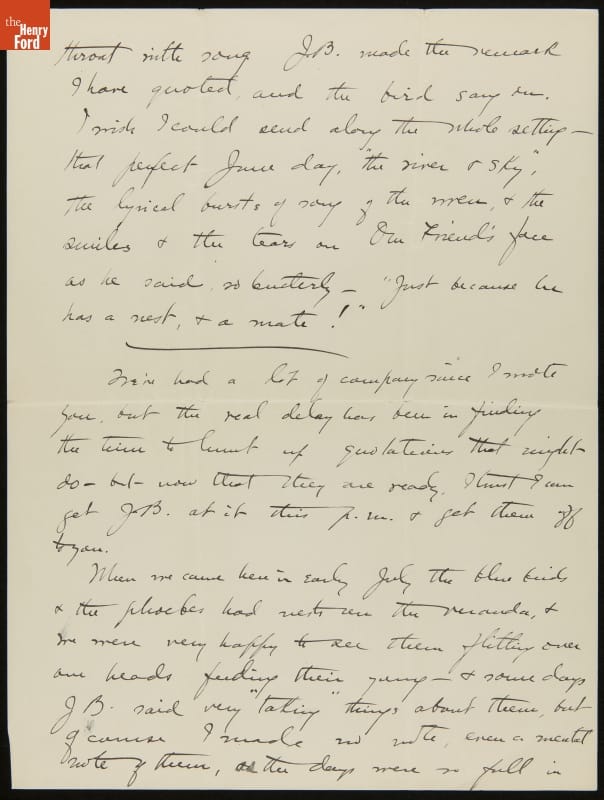 the Henry Ford
throat with song J.B. made the remark
I have quoted, and the bird sang on.
I wish I could send along the whole setting —
that perfect June day, "the river & sky",
the lyrical bursts of song of the wren, & the
smiles & the tears on Our Friend's face
as he said, so tenderly — "Just because he
has a nest, & a mate!"
We've had a lot of company since I wrote
you, but the real delay has been in finding
the time to hunt up quotations that might
do — but now that they are ready, I trust I can
get J.B. at it this p.m. & get them off
to you.
When we came here in early July the blue birds
& the phoebes had nests on the veranda, &
we were very happy to see them flitting over
our heads feeding their young — & some days
J B. said very "taking" things about them, but
of course I made no note, even a mental
note of them, the days were so full in